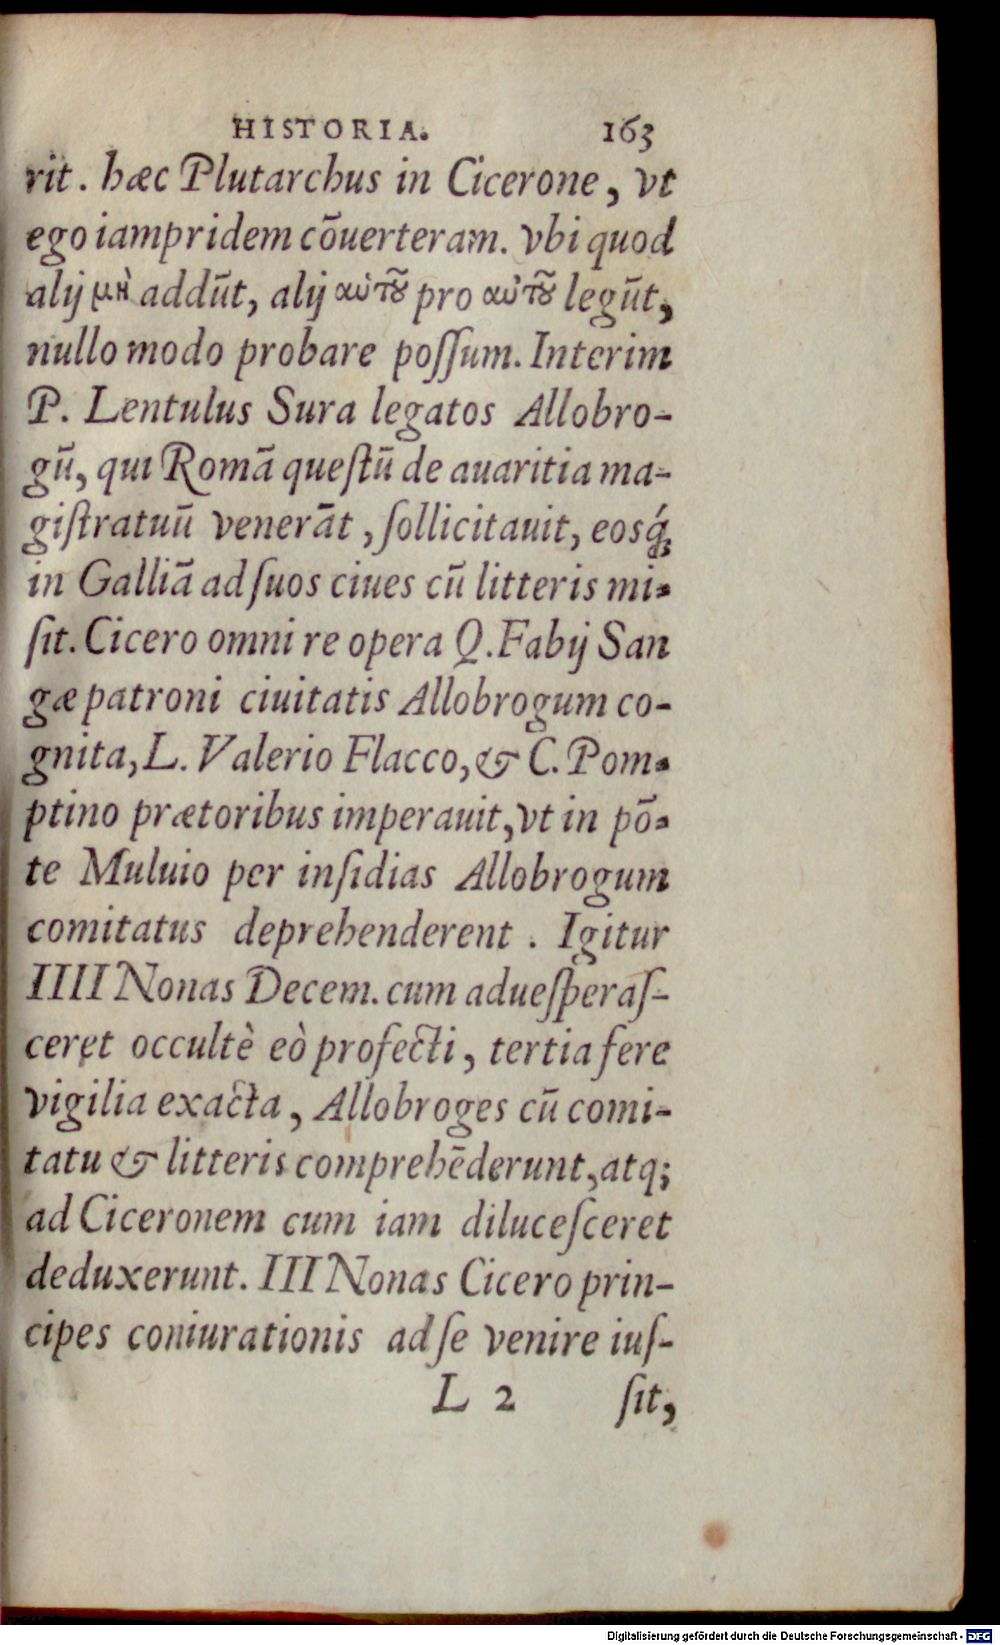 HISTORIA. 163
rit. hæc Plutarchus in Cicerone, vt
ego iampridem cōuerteram. vbi quod
alij μὴ addūt, alij αὐτȣ͂ pro αὑτȣ͂ legūt,
nullo modo probare poſſum. Interim
P. Lentulus Sura legatos Allobro-
gū, qui Romā queſtū de auaritia ma-
giſtratuū venerāt, ſollicitauit, eosq́;
in Galliā ad ſuos ciues cū litteris mi-
ſit. Cicero omni re opera Q. Fabij San
gæ patroni ciuitatis Allobrogum co-
gnita, L. Valerio Flacco, & C. Pom-
ptino prætoribus imperauit, vt in pō-
te Muluio per inſidias Allobrogum
comitatus deprehenderent. Igitur
IIII Nonas Decem. cum adueſperaſ-
ceret occultè eò profecti, tertia fere
vigilia exacta, Allobroges cū comi-
tatu & litteris comprehēderunt, atq;
ad Ciceronem cum iam diluceſceret
deduxerunt. III Nonas Cicero prin-
cipes coniurationis ad ſe venire iuſ-
L 2 ſit,
Digitalisierung gefördert durch die Deutsche Forschungsgemeinschaft - DFG